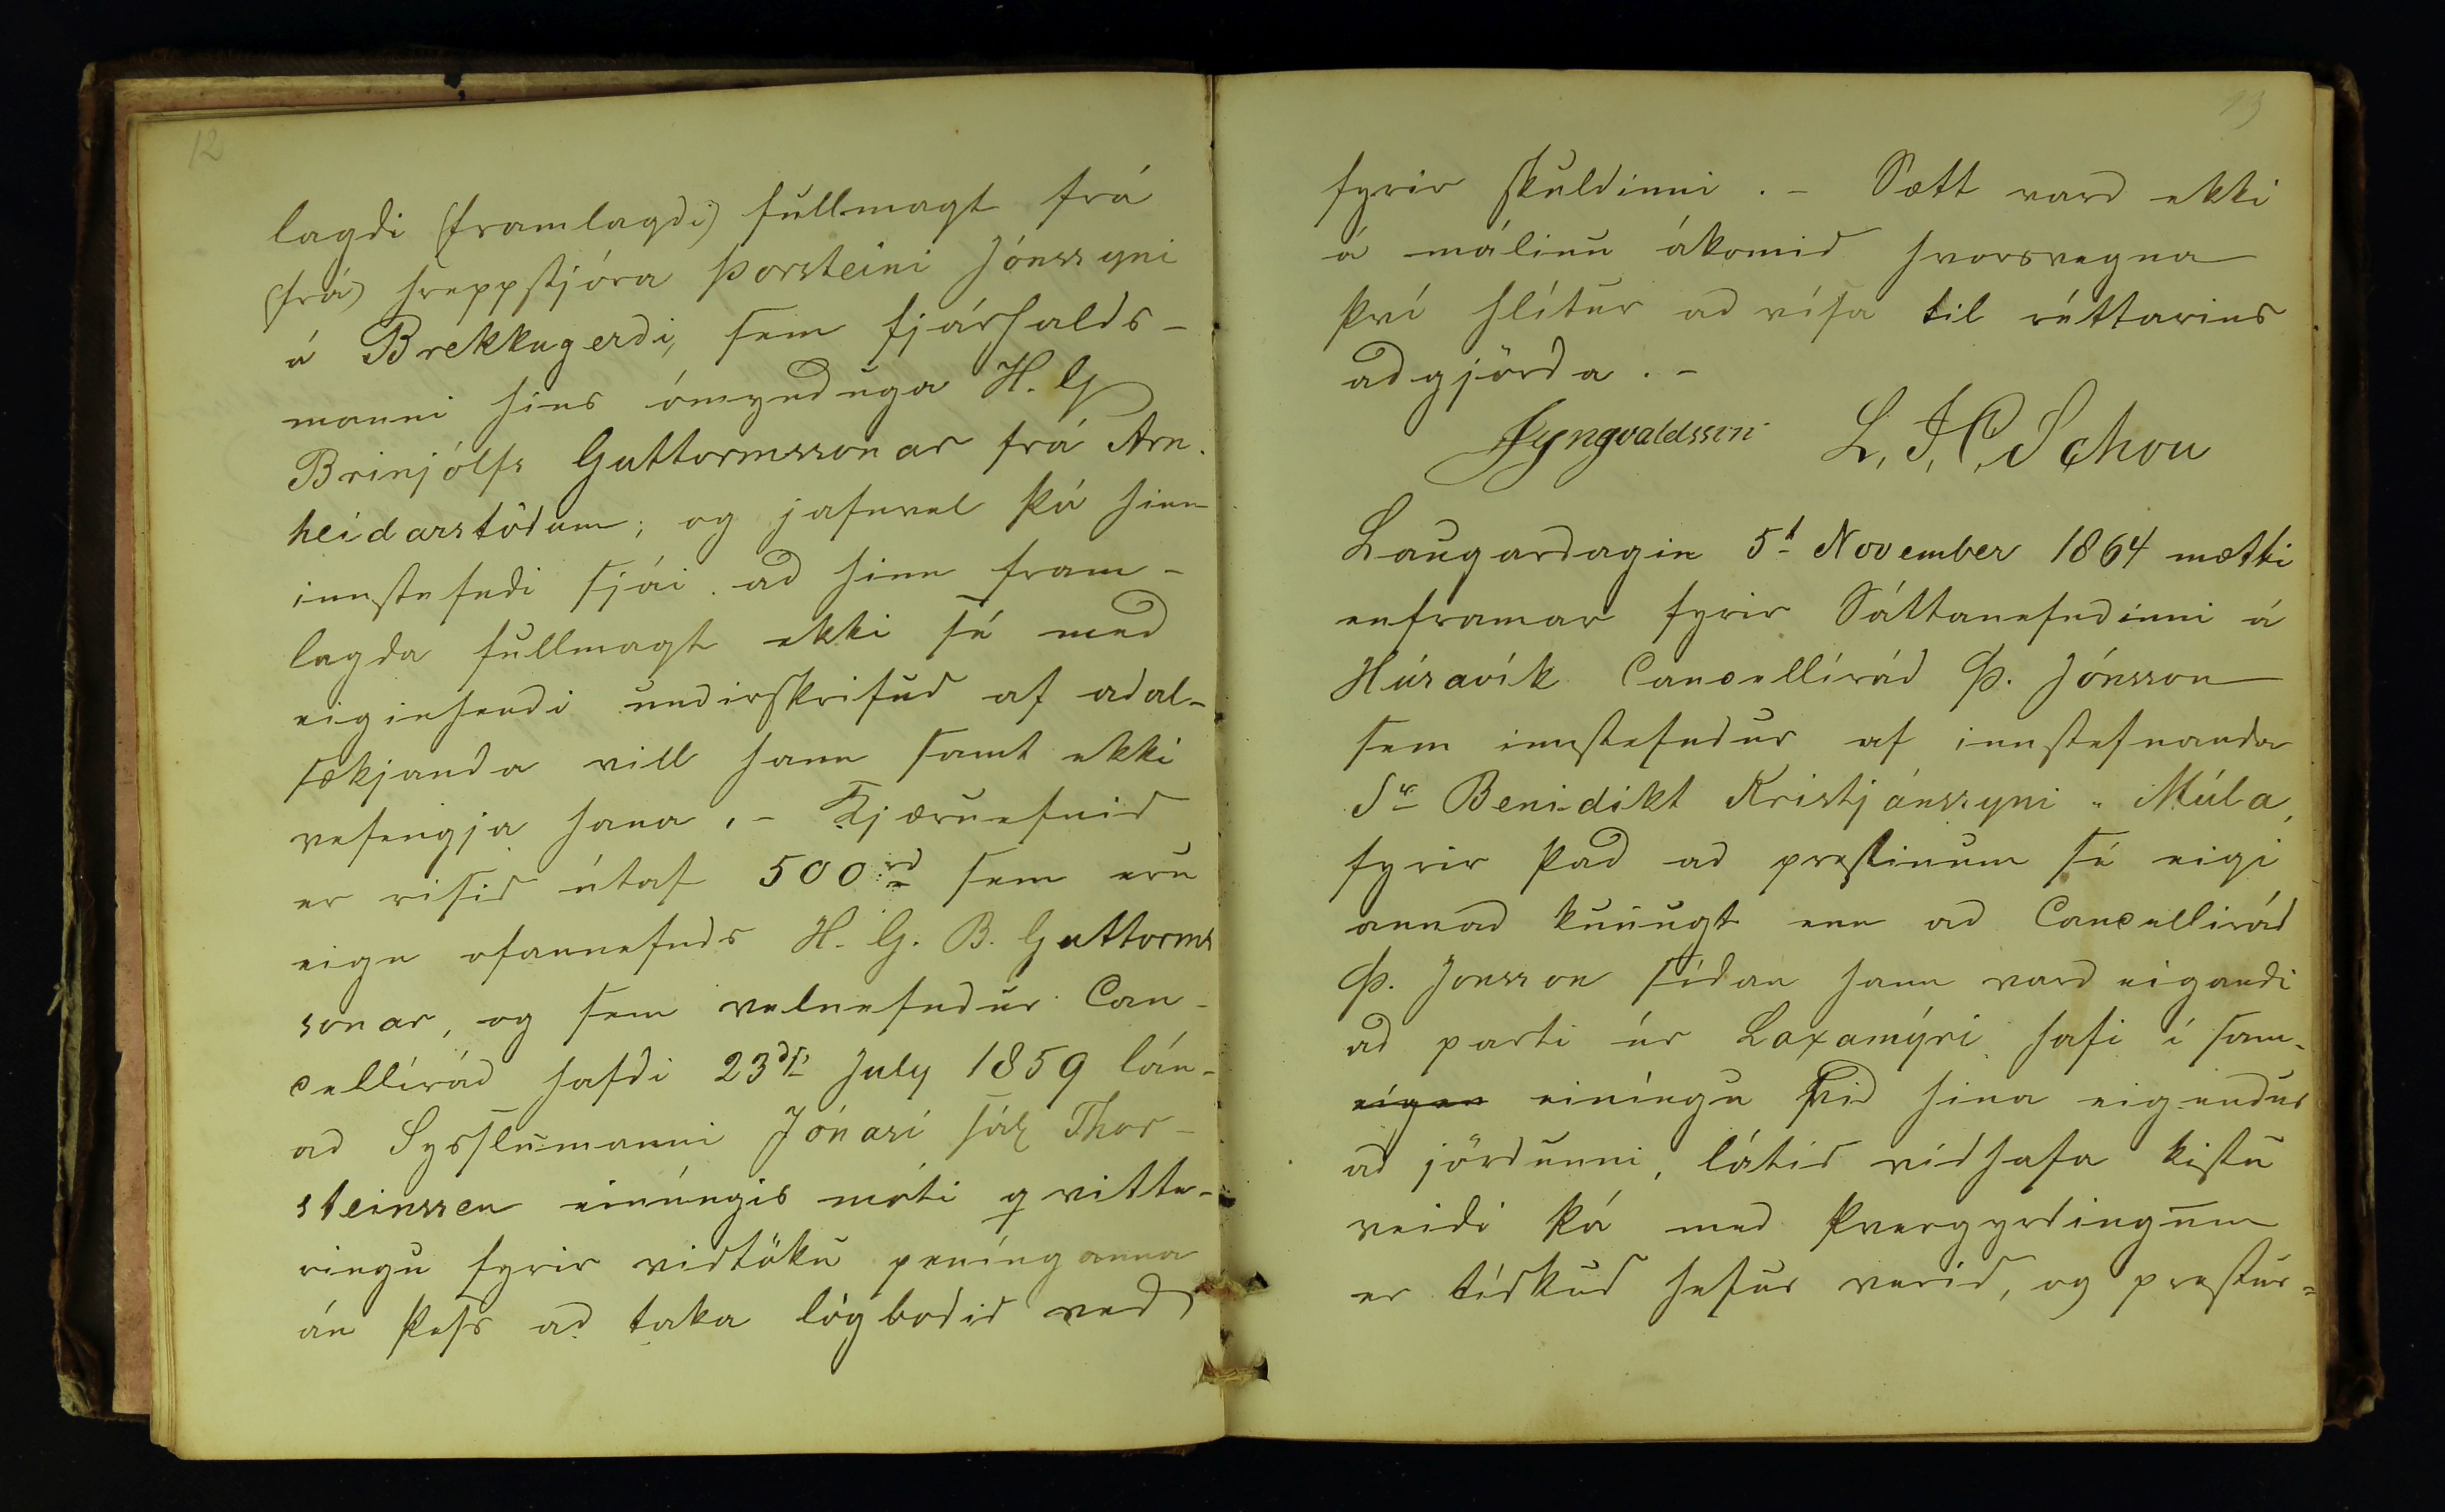 12
lagdi (framlagdi) fullmagt frá
(frá) hreppstjóra Þorsteini Jónssyni
á Brekkugerdi, sem fjárhalds-
manni hins ómynduga H. G
Brinjólfs Guttormssonar frá Arn.
heidarstödum; og jafnvel þá hinn
innstefndi sjái ad hinn fram-
lagda fullmagt ekki sé med
eiginhendi undirskrifud af adal-
sækjanda vill hann samt ekki
vefengja hana. - Kjæruefnid
er risid útaf 500 rd sem eru
eign ofannefnds H. G. B. Guttorms
sonar, og sem velnefndur Can-
cellírád hafdi 23di July 1859 lán-
ad Sysslumanni Jónasi sál Thor-
steinssen einúngis móti qvitte-
ringu fyrir vidtöku penínganna
án þess ad taka lögbodid ved
13
fyrir skuldinni. - Sætt vard ekki
á málinu ákomid hvorsvegna
því hlítur ad vísa til réttarins
adgjörda. -
JIyngvaldssen L. J. C. Schou
Laugardagin 5t November 1864 mætti
enframar fyrir Sáttanefndinni á
Húsavík Cancellírád Þ. Jónsson
sem innstefndur af innstefnanda
Sr Benidikt Kristjánssyni " Múla,
fyrir þad ad prestinum sé eigi
annad kunnugt enn ad Cancellirád
Þ. Jonsson sídan hann vard eigandi
ad parti úr Laxamýri hafi í sam-
eigen einíngu vid hina eigendur
ad jördunni, látid vidhafa kistu
veidi þá med þvergyrdingum
er tídkud hefur verid, og prestur=